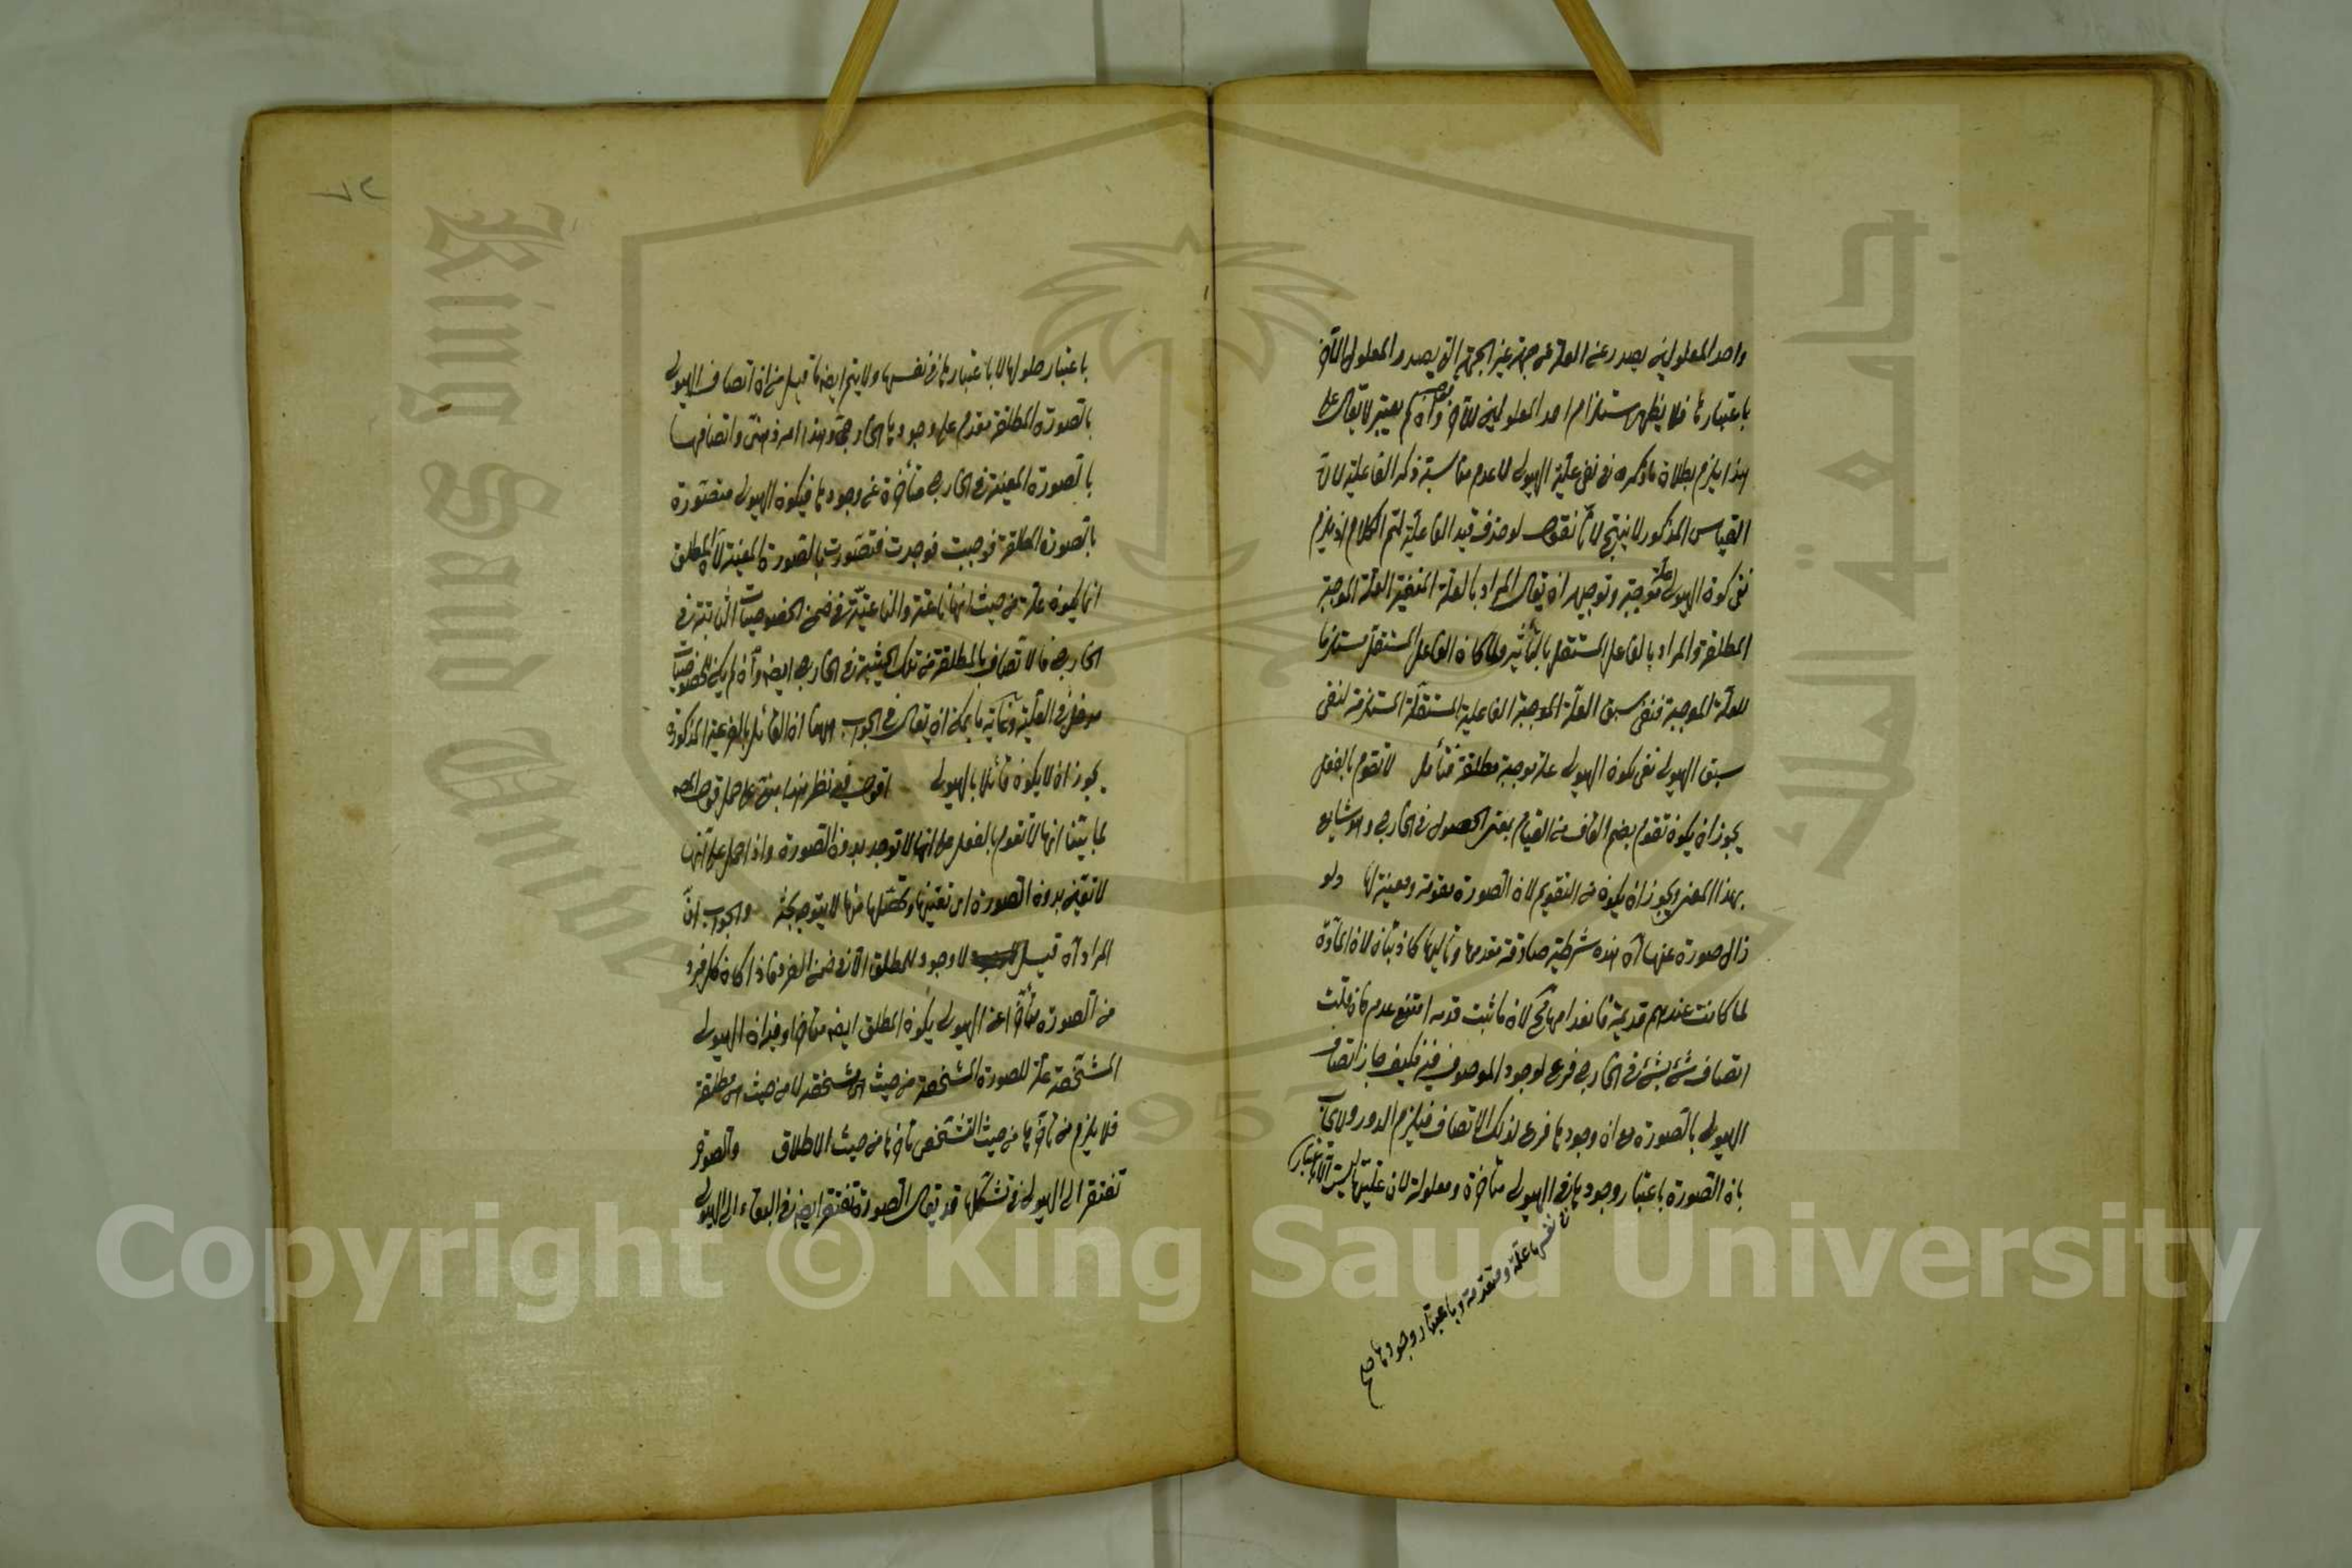 واحد المعلولين يصدر عن العلة عن جهة غير الجهة التي يصدر المعلول الآخر
باعتبارها فلا يظهر استلزام احد المعلولين للآخر وان لم يعتبر لا يقال على
هذا يلزم بطلان ما ذكره في نفي علية الهيولى لا عدم مناسبة ذكر الفاعلية لان
القياس المذكور لا ينتج لانا نقول لو حذف قيد الفاعلية لتم الكلام اذ يلزم
نفي كون الهيولى علة موجبة وتوجيهه ان يقال المراد بالعلة المنفية العلة الموجبة
المطلقة والمراد بالفاعل المستقل بالتأثير ولما كان الفاعل المستقل مستلزما
للعلة الموجبة فنفي سبق العلة الموجبة الفاعلية المستقلة المستلزمة لنفي
سبق الهيولى نفي كون الهيولى علة موجبة مطلقة فتأمل لا تقوم بالفعل
يجوز ان يكون تقوم بضم القاف من القيام بمعنى الحصول في الخارج وهو شايع
بهذا المعنى ويجوز ان يكون من التقويم لان الصورة مقومة ومعينة لها ولو
زال صورة عنها آه هذه شرطية صادقة مقدمها وتاليها كاذبتان لان المادة
لما كانت عندهم قديمة فانعدامها مح لان ما ثبت قدمه امتنع عدمه فان قلت
اتصاف شئ بشئ في الخارج فرع لوجود الموصوف فيه فكيف جاز اتصاف
الهيولى بالصورة مع ان وجودها فرع لذلك الاتصاف فيلزم الدور ولا يجاب
بان الصورة باعتبار وجودها في الهيولى متأخرة ومعلولة لان عليتها ليست الا باعتبار
في نفسها علة ومتقدمة وباعتبار وجودها صح
باعتبار حلولها لا باعتبارها في نفسها ولا يتم ايضا ما قيل من ان اتصاف الهيولى
بالصورة المطلقة مقدم على وجودها الخارجي وهذا امر ذهني واتصافها
بالصورة المعينة في الخارج متأخرة عن وجودها فيكون الهيولى متصورة
بالصورة المطلقة فوجبت فوجدت فتصورت بالصورة المعينة لان المطلق
انما يكون علة من حيث انها ناعتة والناعتية في ضمن الخصوصيات الثابتة في
الخارج فالاتصاف بالمطلقة من تلك الحيثية في الخارج ايضا وان لم يكن للخصوصيات
مدخل في العلية وغاية ما يمكن ان يقال في الجواب ههنا ان القائل بالفرعية المذكورة
يجوز ان لا يكون قائلا بالهيولى اقول فيه نظر هذا مبني على حمل قول المص
لما بينا انها لا تقوم بالفعل على انها لا توجد بدون الصورة واذا حمل على انها
لا تتعين بدون الصورة اي تعينها وتحصلها منها لا يتوجه بحثه والجواب ان
المراد آه قيل لا وجود للمطلق الا في ضمن الفرد فاذا كان كل فرد
من الصورة متأخرا عن الهيولى يكون المطلق ايضا متأخرا وفيه ان الهيولى
المشخصة علة للصورة المشخصة من حيث هي مشخصة لا من حيث هي مطلقة
فلا يلزم من تأخرها من حيث التشخص تأخرها من حيث الاطلاق والصورة
تفتقر الى الهيولى في تشكلها قد يقال الصورة تفتقر ايضا في البقاء الى الهيولى
Copyright © King Saud University